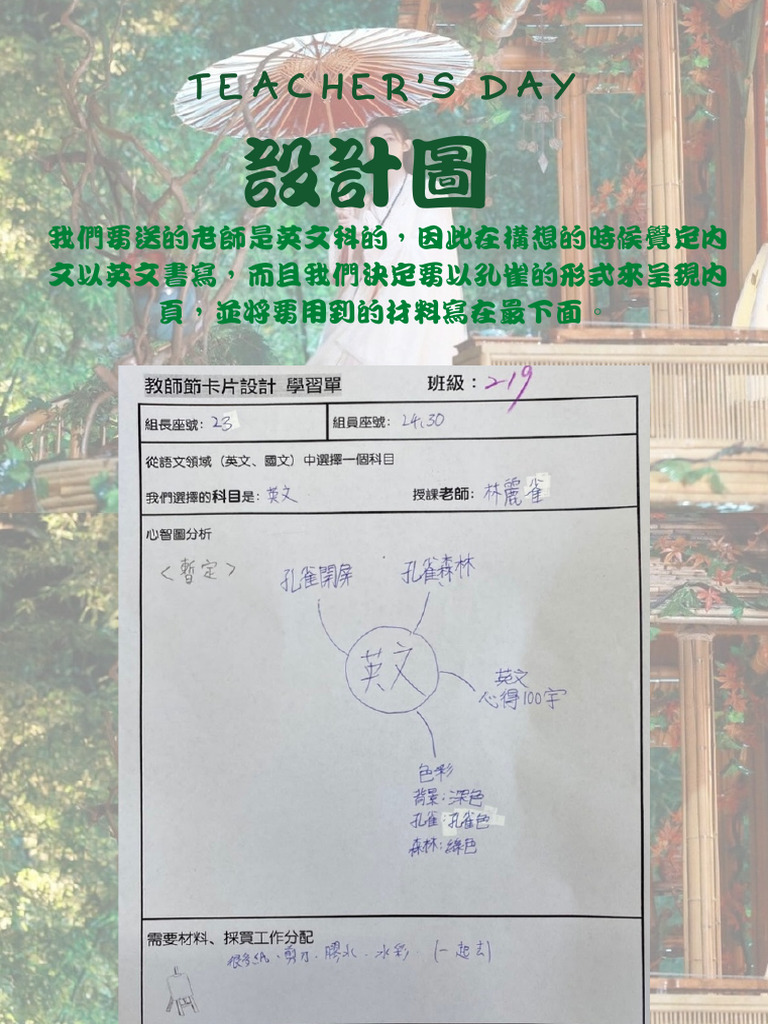 TEACHER'S DAY
設計圖
我們要送的老師是英文科的，因此在構想的時候覺定內
文以英文書寫，而且我們決定要以孔雀的形式來呈現內
頁，並將要用到的材料寫在最下面。
教師節卡片設計 學習單 班級：219
組長座號：23 組員座號：24、30
從語文領域（英文、國文）中選擇一個科目
我們選擇的科目是：英文 授課老師：林麗雀
心智圖分析
<暫定>
孔雀開屏 孔雀森林
英文
英文
心得100字
色彩
背景：深色
孔雀：孔雀色
森林：綠色
需要材料、採買工作分配
很多紙、剪刀、膠水、水彩 (一起去)